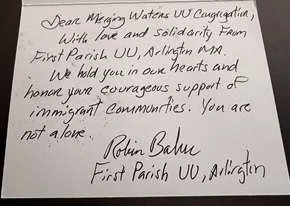 Dear Merging Waters UU Congregation,
With love and solidarity from
First Parish UU, Arlington MA.
We hold you in our hearts and
honor your courageous support of
immigrant communities. You are
not alone.
Robin
First Parish UU, Arlington